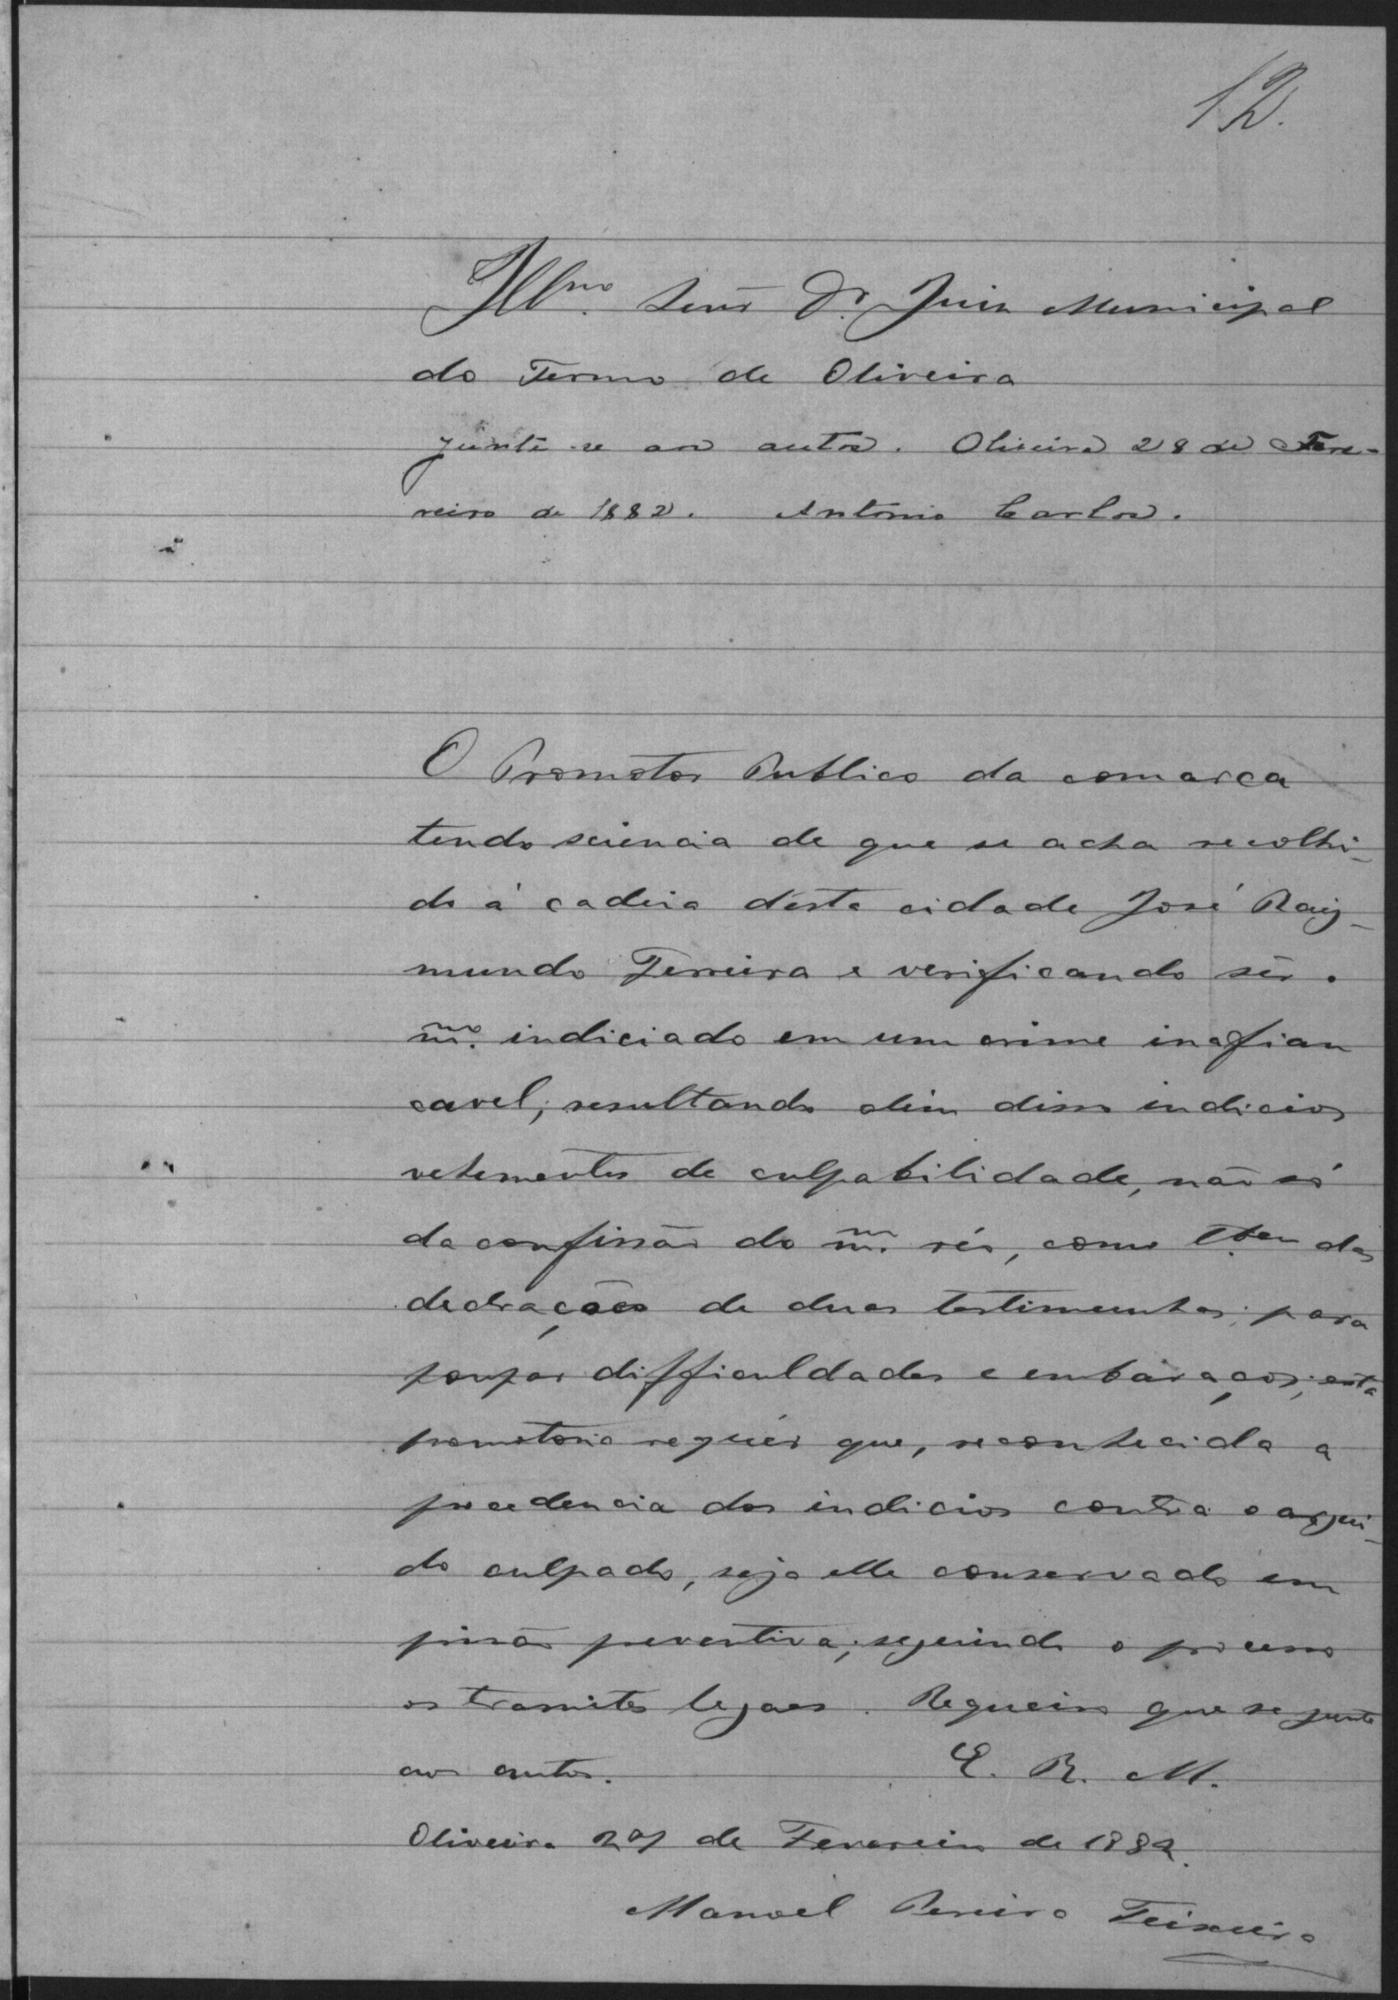 12.
Illmo. Senr. Dr. Juiz Municipal
do Termo de Oliveira
Junte-se aos autos. Oliveira 28 de Feve-
reiro de 1882. Antonio Carlos.
O Promotor Publico da comarca
tendo sciencia de que se acha recolhi-
do á cadeia desta cidade José Ray-
mundo Ferreira e verificando sêr o
mmo. indiciado em um crime inafian
cavel; resultando alem disso indicios
vehementes de culpabilidade, não só
da confissão do mmo. réo, como tbem das
declarações de duas testimunhas; para
poupar difficuldades e embaraços; esta
promotoria requér que, reconhecida a
procedencia dos indicios contra o argui-
do culpado, seja elle conservado em
prisão preventiva; seguindo o processo
os tramites legaes. Requeiro que se junte
aos autos. E. R. M.
Oliveira 27 de Fevereiro de 1882.
Manoel Pereira Teixeira